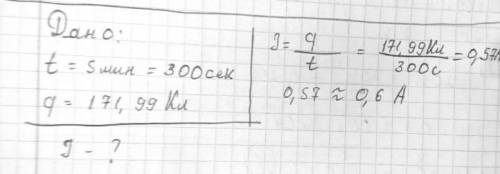 Дано:
t = 5 мин = 300 сек
q = 171,99 Кл
I - ?
I = q/t = 171,99 Кл/300 с = 0,57А
0,57 ≈ 0,6 А